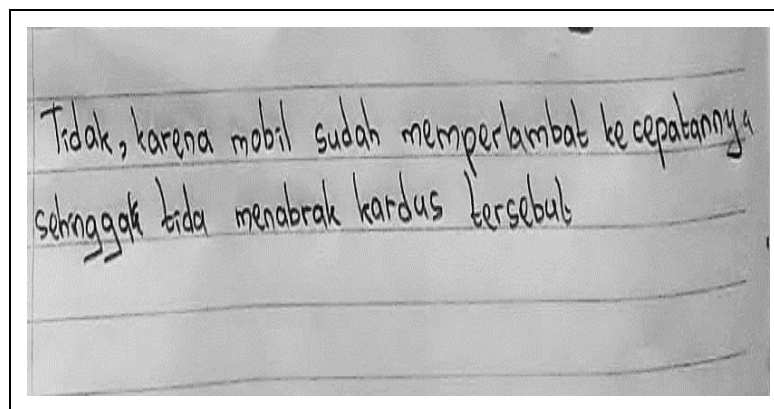 Tidak, karena mobil sudah memperlambat kecepatannya
sehinggak tida menabrak kardus tersebut